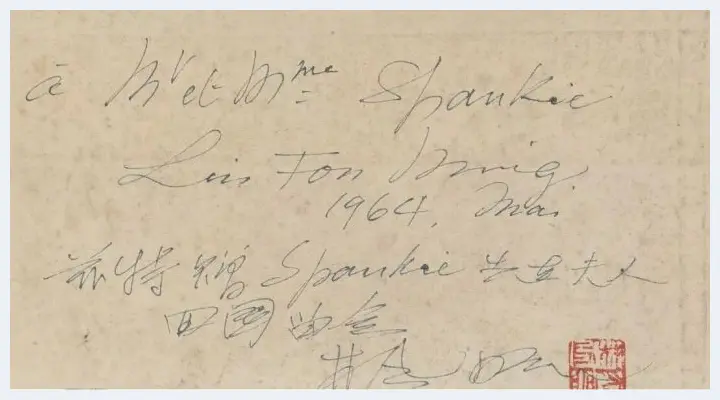 à Mr et Mme Spankie
Lin Fon Ming
1964, Mai
兹特贈 Spankie 先生夫人
回國留念
林